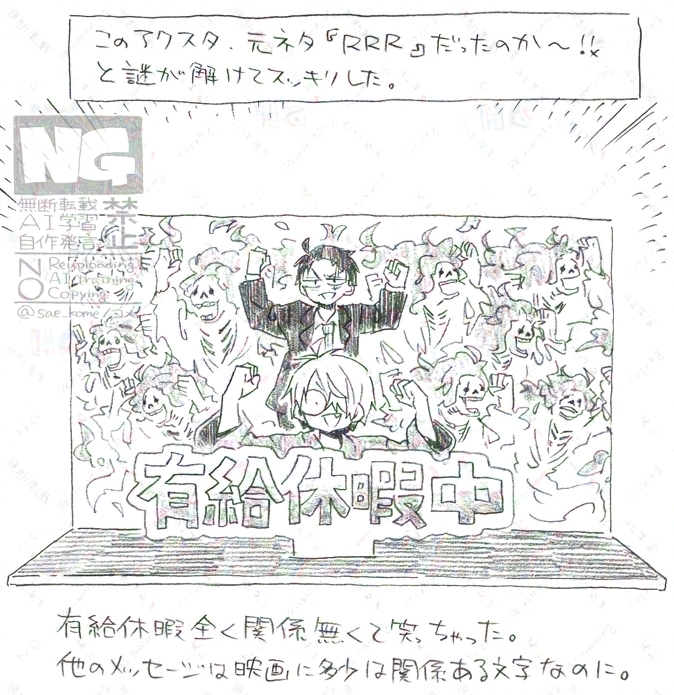 このアクスタ、元ネタ『RRR』だったのか～!!
と謎が解けてスッキリした。
NG
無断転載
AI学習
自作発言
禁止
NO
Reuploading
AI training
Copying
@sae_kome/コメ
有給休暇中
有給休暇全く関係無くて笑っちゃった。
他のメッセージは映画に多少は関係ある文字なのに。